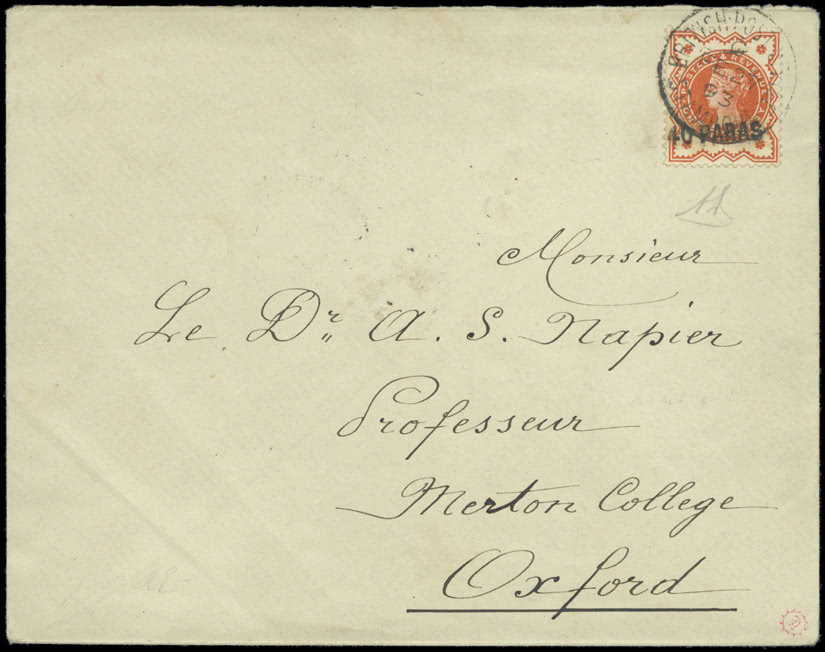 BRITISH POS
C
93
POSTAGE & REVENUE
40 PARAS
Monsieur
Le Dr. A. S. Napier
Professeur
Merton College
Oxford